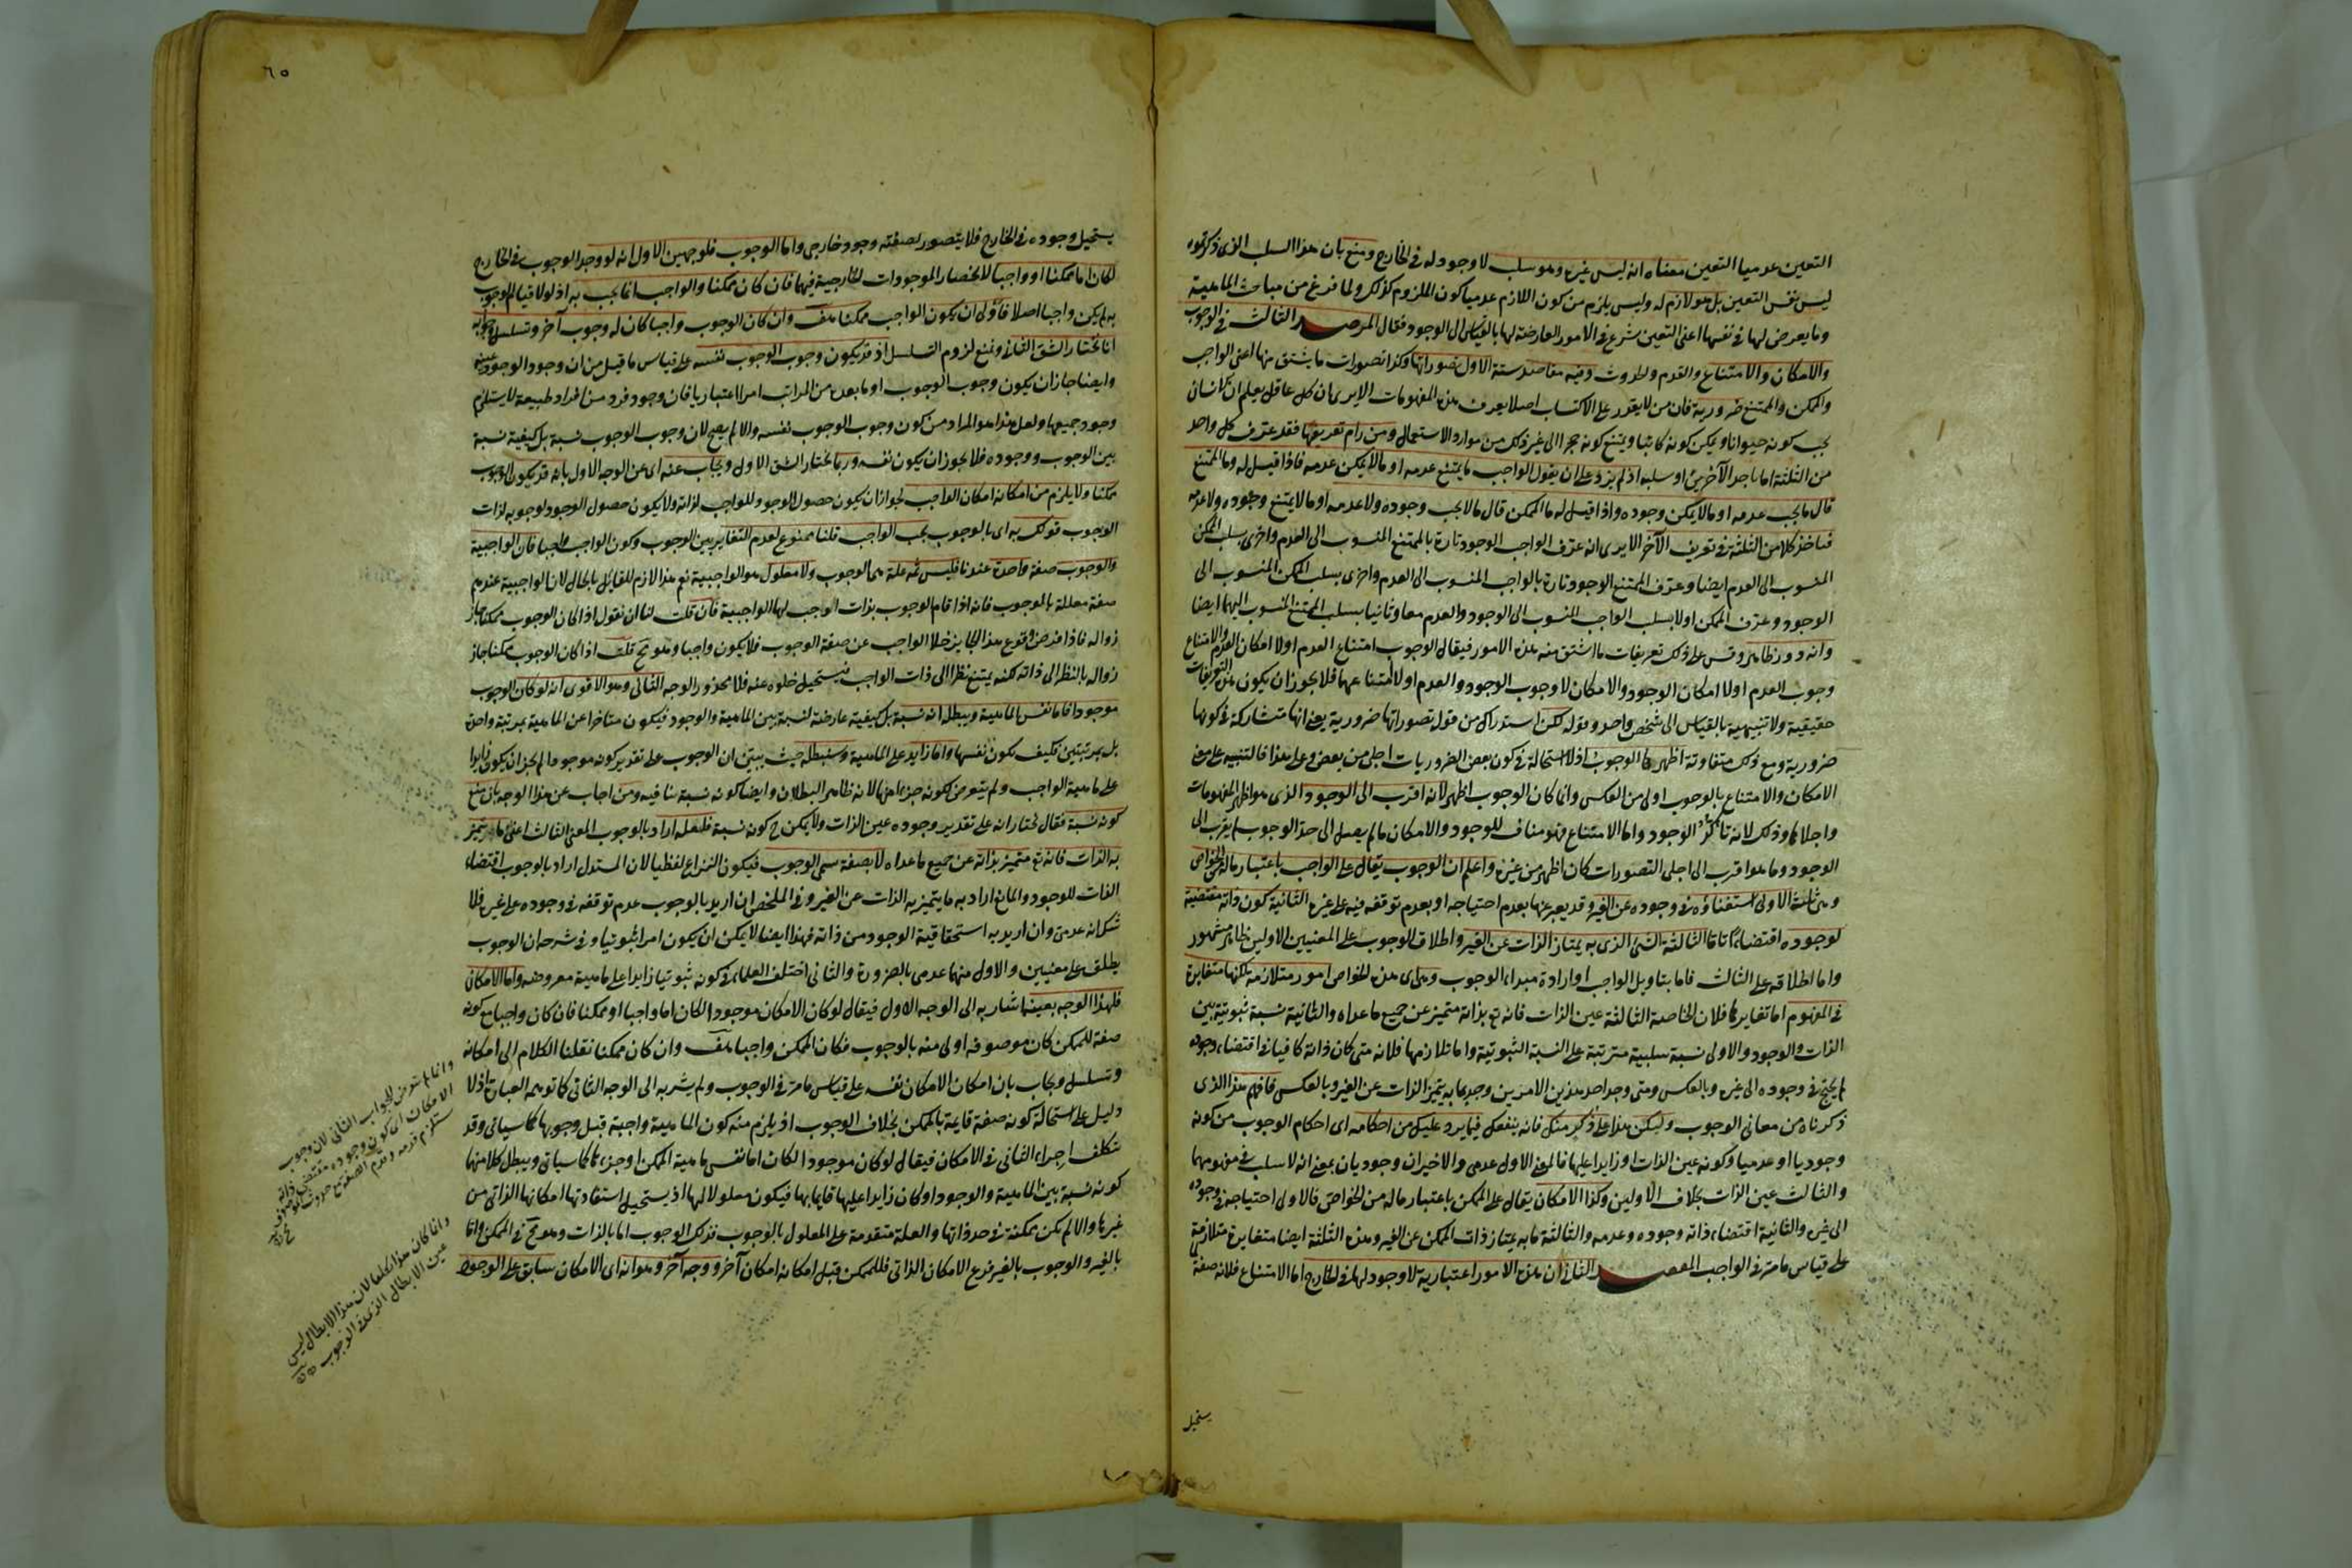 التعين عدميا التعين معناه انه ليس غيره وهو سلب لا وجود له في الخارج ومنع بان هذا السلب الذى ذكرتموه
ليس نفس التعين بل هو لازم له وليس يلزم من كون اللازم عدميا كون الملزوم كذلك ولما فرغ من مباحث الماهية
وما يعرض لها في نفسها اعنى التعين شرع في الامور العارضة لها بالقياس الى الوجود فقال المرصد الثالث في الوجوب
والامكان والامتناع والقدم والحدوث وفيه مقاصد ستة الاول تصوراتها وكذا تصورات ما يشتق منها اعنى الواجب
والممكن والممتنع ضرورية فان من لا يقدر على الاكتساب اصلا يعرف هذه المفهومات الا يرى ان كل عاقل يعلم ان الانسان
يجب كونه حيوانا ويمكن كونه كاتبا ويمتنع كونه حجرا الى غير ذلك من موارد الاستعمال ومن رام تعريفها فقد عرف كل واحد
من الثلثة اما باحد الآخرين او سلبه اذ لم يزد على ان يقول الواجب ما يمتنع عدمه او ما لا يمكن عدمه فاذا قيل له وما الممتنع
قال ما يجب عدمه او ما لا يمكن وجوده واذا قيل له ما الممكن قال ما لا يجب وجوده ولا عدمه او ما لا يمتنع وجوده ولا عدمه
فياخذ كلا من الثلثة في تعريف الآخر الا يرى انه عرف الواجب الوجود تارة بالممتنع المنسوب الى العدم واخرى بسلب الممكن
المنسوب الى العدم ايضا وعرف الممتنع الوجود تارة بالواجب المنسوب الى العدم واخرى بسلب الممكن المنسوب الى
الوجود وعرف الممكن اولا بسلب الواجب المنسوب الى الوجود والعدم معا وثانيا بسلب الممتنع المنسوب اليهما ايضا
وانه دور ظاهر وقس على ذلك تعريفات ما اشتق منه هذه الامور فيقال الوجوب امتناع العدم او لا امكان العدم والامتناع
وجوب العدم او لا امكان الوجود والامكان لا وجوب الوجود والعدم او لا امتناعهما فلا يجوز ان يكون هذه التعريفات
حقيقية ولا تنبيهية بالقياس الى شخص واحد وقوله لكن استدراك من قوله تصوراتها ضرورية يعني انها متشاركة في كونها
ضرورية ومع ذلك متفاوتة اظهرها الوجوب اذ لا استحالة في كون بعض الضروريات اجلى من بعض وعلى هذا فالتنبيه على معنى
الامكان والامتناع بالوجوب اولى من العكس وانما كان الوجوب اظهر لانه اقرب الى الوجود الذى هو اظهر المفهومات
واجلاها وذلك لانه تاكد الوجود واما الامتناع فهو مناف للوجود والامكان ما لم يصل الى حد الوجوب لم يقرب الى
الوجود وما هو اقرب الى اجلى التصورات كان اظهر من غيره واعلم ان الوجوب يقال على الواجب باعتبار ماله من الخواص
وهى ثلثة الاولى استغناؤه في وجوده عن الغير وقد يعبر عنها بعدم احتياجه او بعدم توقفه فيه على غيره الثانية كون ذاته مقتضية
لوجوده اقتضاء تاما الثالثة الشئ الذى به يمتاز الذات عن الغير واطلاق الوجوب على المعنيين الاولين ظاهر مشهور
واما اطلاقه على الثالث فاما بتاويل الواجب او ارادة مبداء الوجوب وهى اى هذه الخواص امور متلازمة لكنها متغايرة
في المفهوم اما تغايرها فلان الخاصة الثالثة عين الذات فانه تع بذاته متميز عن جميع ما عداه والثانية نسبة ثبوتية بين
الذات والوجود والاولى نسبة سلبية مترتبة على النسبة الثبوتية واما تلازمها فلانه متى كان ذاته كافيا في اقتضاء وجوده
لم يحتج في وجوده الى غيره وبالعكس ومتى وجد احد هذين الامرين وجد ما به يتميز الذات عن الغير وبالعكس فافهم هذا الذى
ذكرناه من معانى الوجوب وليكن هذا على ذكر منك فانه ينفعك فيما يرد عليك من احكامه اى احكام الوجوب من كونه
وجوديا او عدميا وكونه عين الذات او زايدا عليها فالمعنى الاول عدمى والاخيران وجوديان بمعنى انه لا سلب في مفهومهما
والثالث عين الذات بخلاف الاولين وكذا الامكان يقال على الممكن باعتبار ماله من الخواص فالاولى احتياجه في وجوده
الى غيره والثانية اقتضاء ذاته وجوده وعدمه والثالثة ما به يمتاز ذات الممكن عن الغير وهذه الثلثة ايضا متغايرة متلازمة
على قياس ما مر في الواجب المقصد الثانى ان هذه الامور اعتبارية لا وجود لها في الخارج اما الامتناع فلانه صفة
يستحيل
٦٥
يستحيل وجوده في الخارج فلا يتصور لصفته وجود خارجى واما الوجوب فلوجهين الاول انه لو وجد الوجوب في الخارج
لكان اما ممكنا او واجبا لانحصار الموجودات الخارجية فيهما فان كان ممكنا والواجب انما يجب به اذ لولا قيام الوجوب
به لم يكن واجبا اصلا فاولى ان يكون الواجب ممكنا هف وان كان الوجوب واجبا كان له وجوب آخر وتسلسل وجوابه
انا نختار الشق الثانى ونمنع لزوم التسلسل اذ قد يكون وجوب الوجوب نفسه على قياس ما قيل من ان وجود الوجود عينه
وايضا جاز ان يكون وجوب الوجوب او ما بعده من المراتب امرا اعتباريا فان وجود فرد من افراد طبيعة لا يستلزم
وجود جميعها ولعل هذا هو المراد من كون وجوب الوجوب نفسه والا لم يصح لان وجوب الوجوب نسبة بل كيفية نسبة
بين الوجوب ووجوده فلا يجوز ان يكون نفسه وربما يختار الشق الاول ويجاب عنه اى عن الوجه الاول بانه قد يكون الوجوب
ممكنا ولا يلزم من امكانه امكان الواجب لجواز ان يكون حصول الوجود للواجب لذاته ولا يكون حصول الوجود لوجوبه لذات
الوجوب قولك به اى بالوجوب يجب الواجب قلنا ممنوع لعدم التغاير بين الوجوب وكون الواجب واجبا فان الواجبية
والوجوب صفة واحدة عندنا فليس ثمه علة هى الوجوب ولا معلول هو الواجبية نعم هذا لازم للقايل بالحال لان الواجبية عندهم
صفة معللة بالوجوب فانه اذا قام الوجوب بذات الواجب لها الواجبية فان قلت لنا ان نقول اذا كان الوجوب ممكنا جاز
زواله فاذا فرض وقوع هذا الجايز خلا الواجب عن صفة الوجوب فلا يكون واجبا وهو مح قلت اذا كان الوجوب ممكنا جاز
زواله بالنظر الى ذاته لكنه يمتنع نظرا الى ذات الواجب فيستحيل خلوه عنه فلا محذور الوجه الثانى وهو الاقوى انه لو كان الوجوب
موجودا فاما نفس الماهية ويبطله انه نسبة بل كيفية عارضة لنسبة بين الماهية والوجود فيكون متاخرا عن الماهية بمرتبة واحدة
بل بمرتبتين فكيف يكون نفسها واما زايد على الماهية وسنبطله حيث يبين ان الوجوب على تقدير كونه موجودا لم يجز ان يكون زايدا
على ماهية الواجب ولم يتعرض لكونه جزءا منها لانه ظاهر البطلان وايضا كونه نسبة ينافيه ومن اجاب عن هذا الوجه بان منع
كونه نسبة فقال نختار انه على تقدير وجوده عين الذات ولا يمكن ح كونه نسبة فلعله اراد بالوجوب المعنى الثالث اعنى ما يتميز
به الذات فانه تع متميز بذاته عن جميع ما عداه لا بصفة تسمى الوجوب فيكون النزاع لفظيا لان المستدل اراد بالوجوب اقتضاء
الذات للوجود والمانع اراد به ما يتميز به الذات عن الغير وفي الملخص ان اريد بالوجوب عدم توقفه في وجوده على غيره فلا
شك انه عدمى وان اريد به استحقاقية الوجود من ذاته فهذا ايضا لا يمكن ان يكون امرا ثبوتيا وفى شرحه ان الوجوب
يطلق على معنيين والاول منهما عدمى بالضرورة والثانى اختلف العلماء في كونه ثبوتيا زايدا على ماهية معروضه واما الامكان
فلهذا الوجه بعينه اشار به الى الوجه الاول فيقال لو كان الامكان موجودا لكان اما واجبا او ممكنا فان كان واجبا مع كونه
صفة للممكن كان موصوفه اولى منه بالوجوب فكان الممكن واجبا هف وان كان ممكنا نقلنا الكلام الى امكانه
وتسلسل ويجاب بان امكان الامكان نفسه على قياس ما مر في الوجوب ولم يشر به الى الوجه الثانى كما توهمه العبارة اذ لا
دليل على استحالة كونه صفة قايمة بالممكن بخلاف الوجوب اذ يلزم منه كون الماهية واجبة قبل وجوبها كما سيأتى وقد
تكلف اجراء الثانى في الامكان فيقال لو كان موجودا لكان اما نفس ماهية الممكن او جزءها كما سيأتى ويبطل كلا منهما
كونه نسبة بين الماهية والوجود او كان زايدا عليها قايما بها فيكون معلولا لها اذ يستحيل استفادتها امكانها الذاتى من
غيرها والا لم تكن ممكنة في حد ذاتها والعلة متقدمة على المعلول بالوجوب فذلك الوجوب اما بالذات وهو مح في الممكن واما
بالغير والوجوب بالغير فرع الامكان الذاتى فللممكن قبل امكانه امكان آخر ووجه آخر وهو انه اى الامكان سابق على الوجود
وانما لم يتعرض للجواب الثانى لان وجوب
الامكان ان يكون وجوده مقتضى ذاته
وانما كان هذا تكلفا لان هذا الابطال ليس
عين الابطال الذى في الوجوب